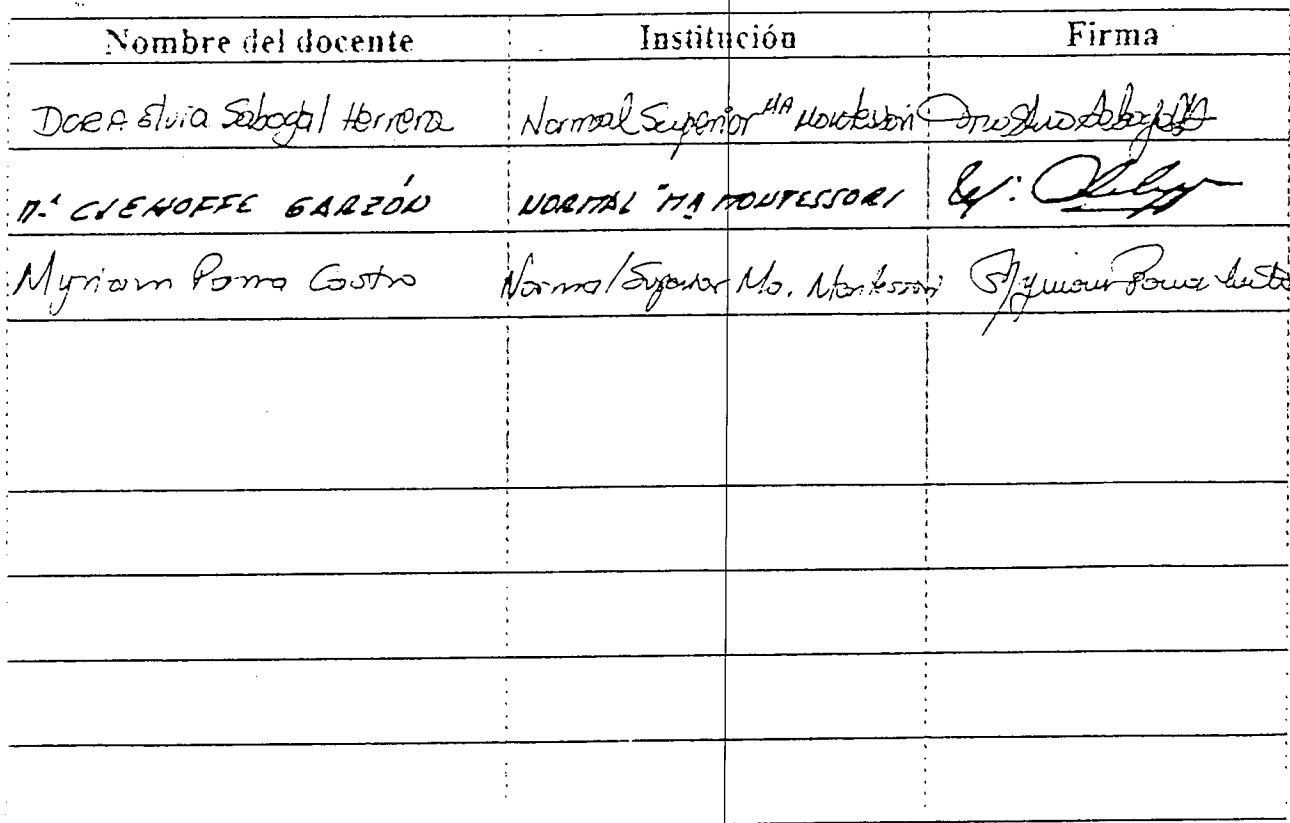 Nombre del docente Institución Firma
Elvia Sabogal Herrera Normal Superior Mª Montessori
Mª GARZÓN NORMAL "Mª MONTESSORI
Myriam Parra Castro Normal Superior Ma. Montessori Myriam Parra Castro